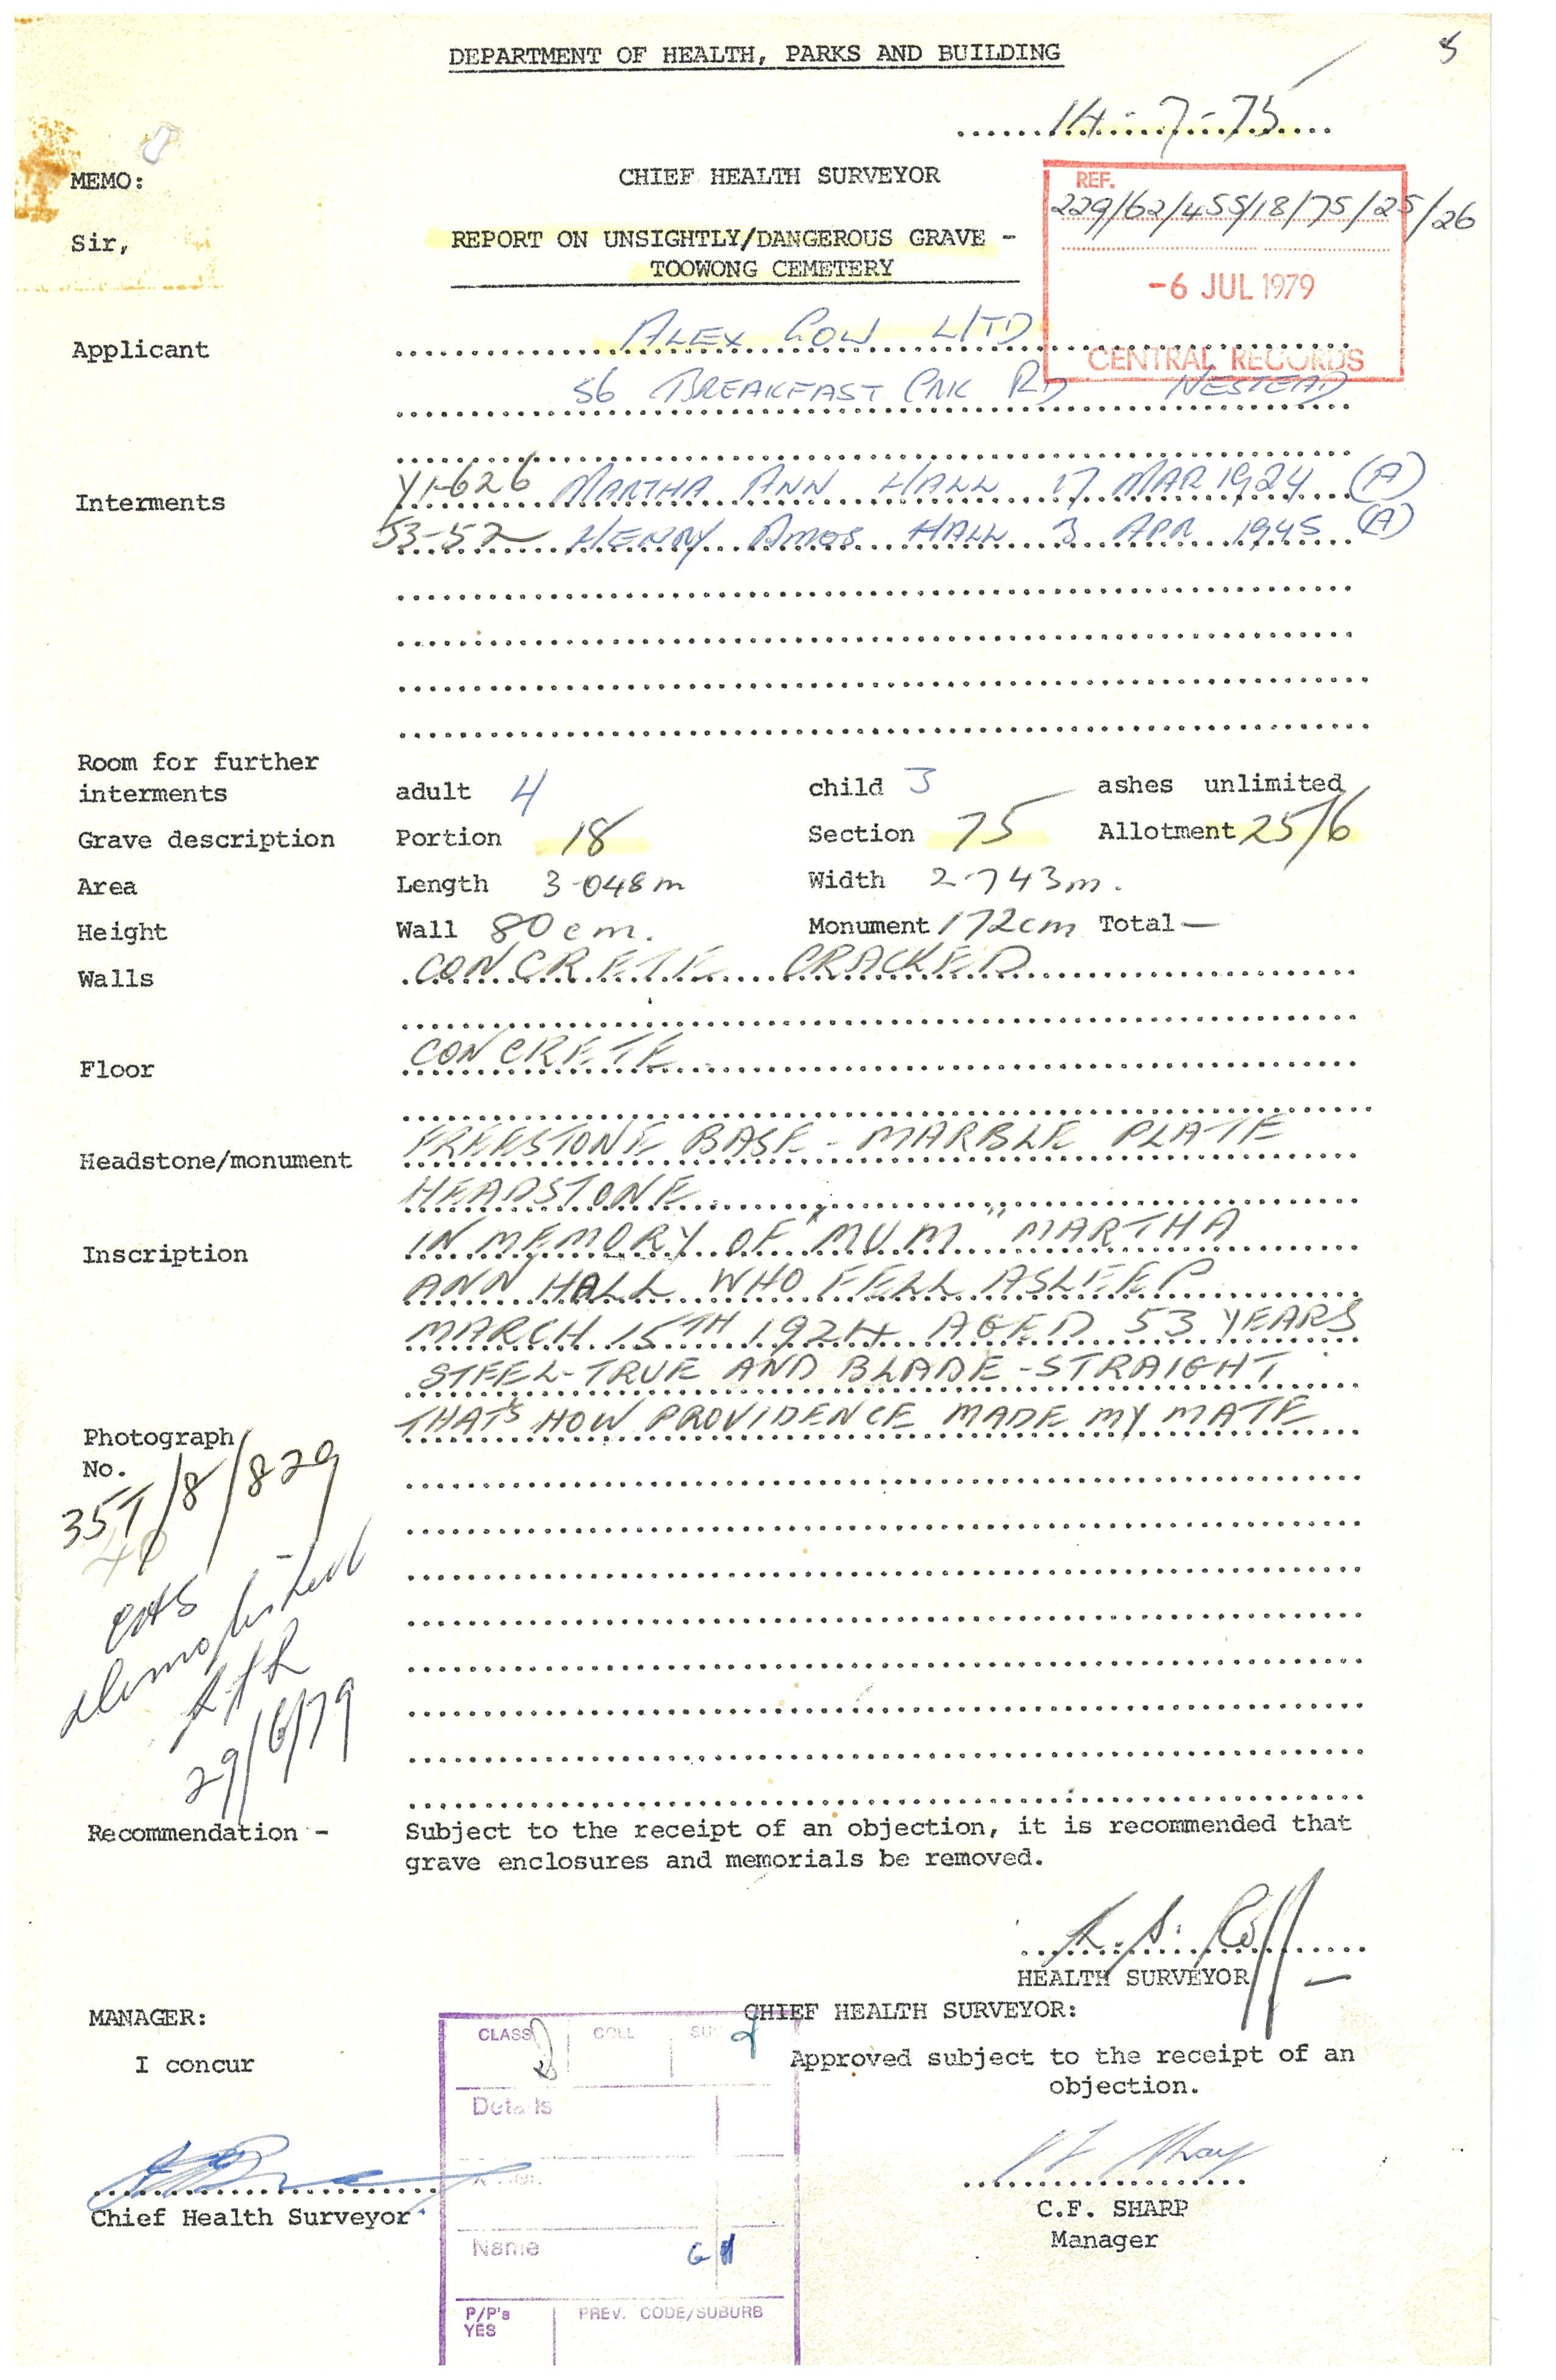 5
DEPARTMENT OF HEALTH, PARKS AND BUILDING
14-7-75
MEMO:
CHIEF HEALTH SURVEYOR
REF.
229/62/455/18/75/25/26
Sir,
REPORT ON UNSIGHTLY/DANGEROUS GRAVE -
TOOWONG CEMETERY
-6 JUL 1979
CENTRAL RECORDS
Applicant ALEX GOW L/TD
56 BREAKFAST CRK RD NESTEAD
Interments Y1-626 MARTHA ANN HALL 17 MAR 1924 (A)
53-52 HENRY AMOS HALL 3 APR 1945 (A)
Room for further
interments adult 4 child 3 ashes unlimited
Grave description Portion 18 Section 75 Allotment 25/6
Area Length 3.048m Width 2.743m.
Height Wall 80cm. Monument 172cm Total —
Walls CONCRETE CRACKED
Floor CONCRETE
Headstone/monument FREESTONE BASE - MARBLE PLATE
HEADSTONE
Inscription IN MEMORY OF "MUM" MARTHA
ANN HALL WHO FELL ASLEEP
MARCH 15TH 1924 AGED 53 YEARS
STEEL-TRUE AND BLADE-STRAIGHT
THAT'S HOW PROVIDENCE MADE MY MATE
Photograph
No.
35T/8/829
40
demolished
29/6/79
Recommendation - Subject to the receipt of an objection, it is recommended that
grave enclosures and memorials be removed.
HEALTH SURVEYOR
MANAGER:
CHIEF HEALTH SURVEYOR:
I concur
Approved subject to the receipt of an
objection.
CLASS COLL
Details
Chief Health Surveyor
C.F. SHARP
Manager
Name GH
P/P's
YES
PREV. CODE/SUBURB